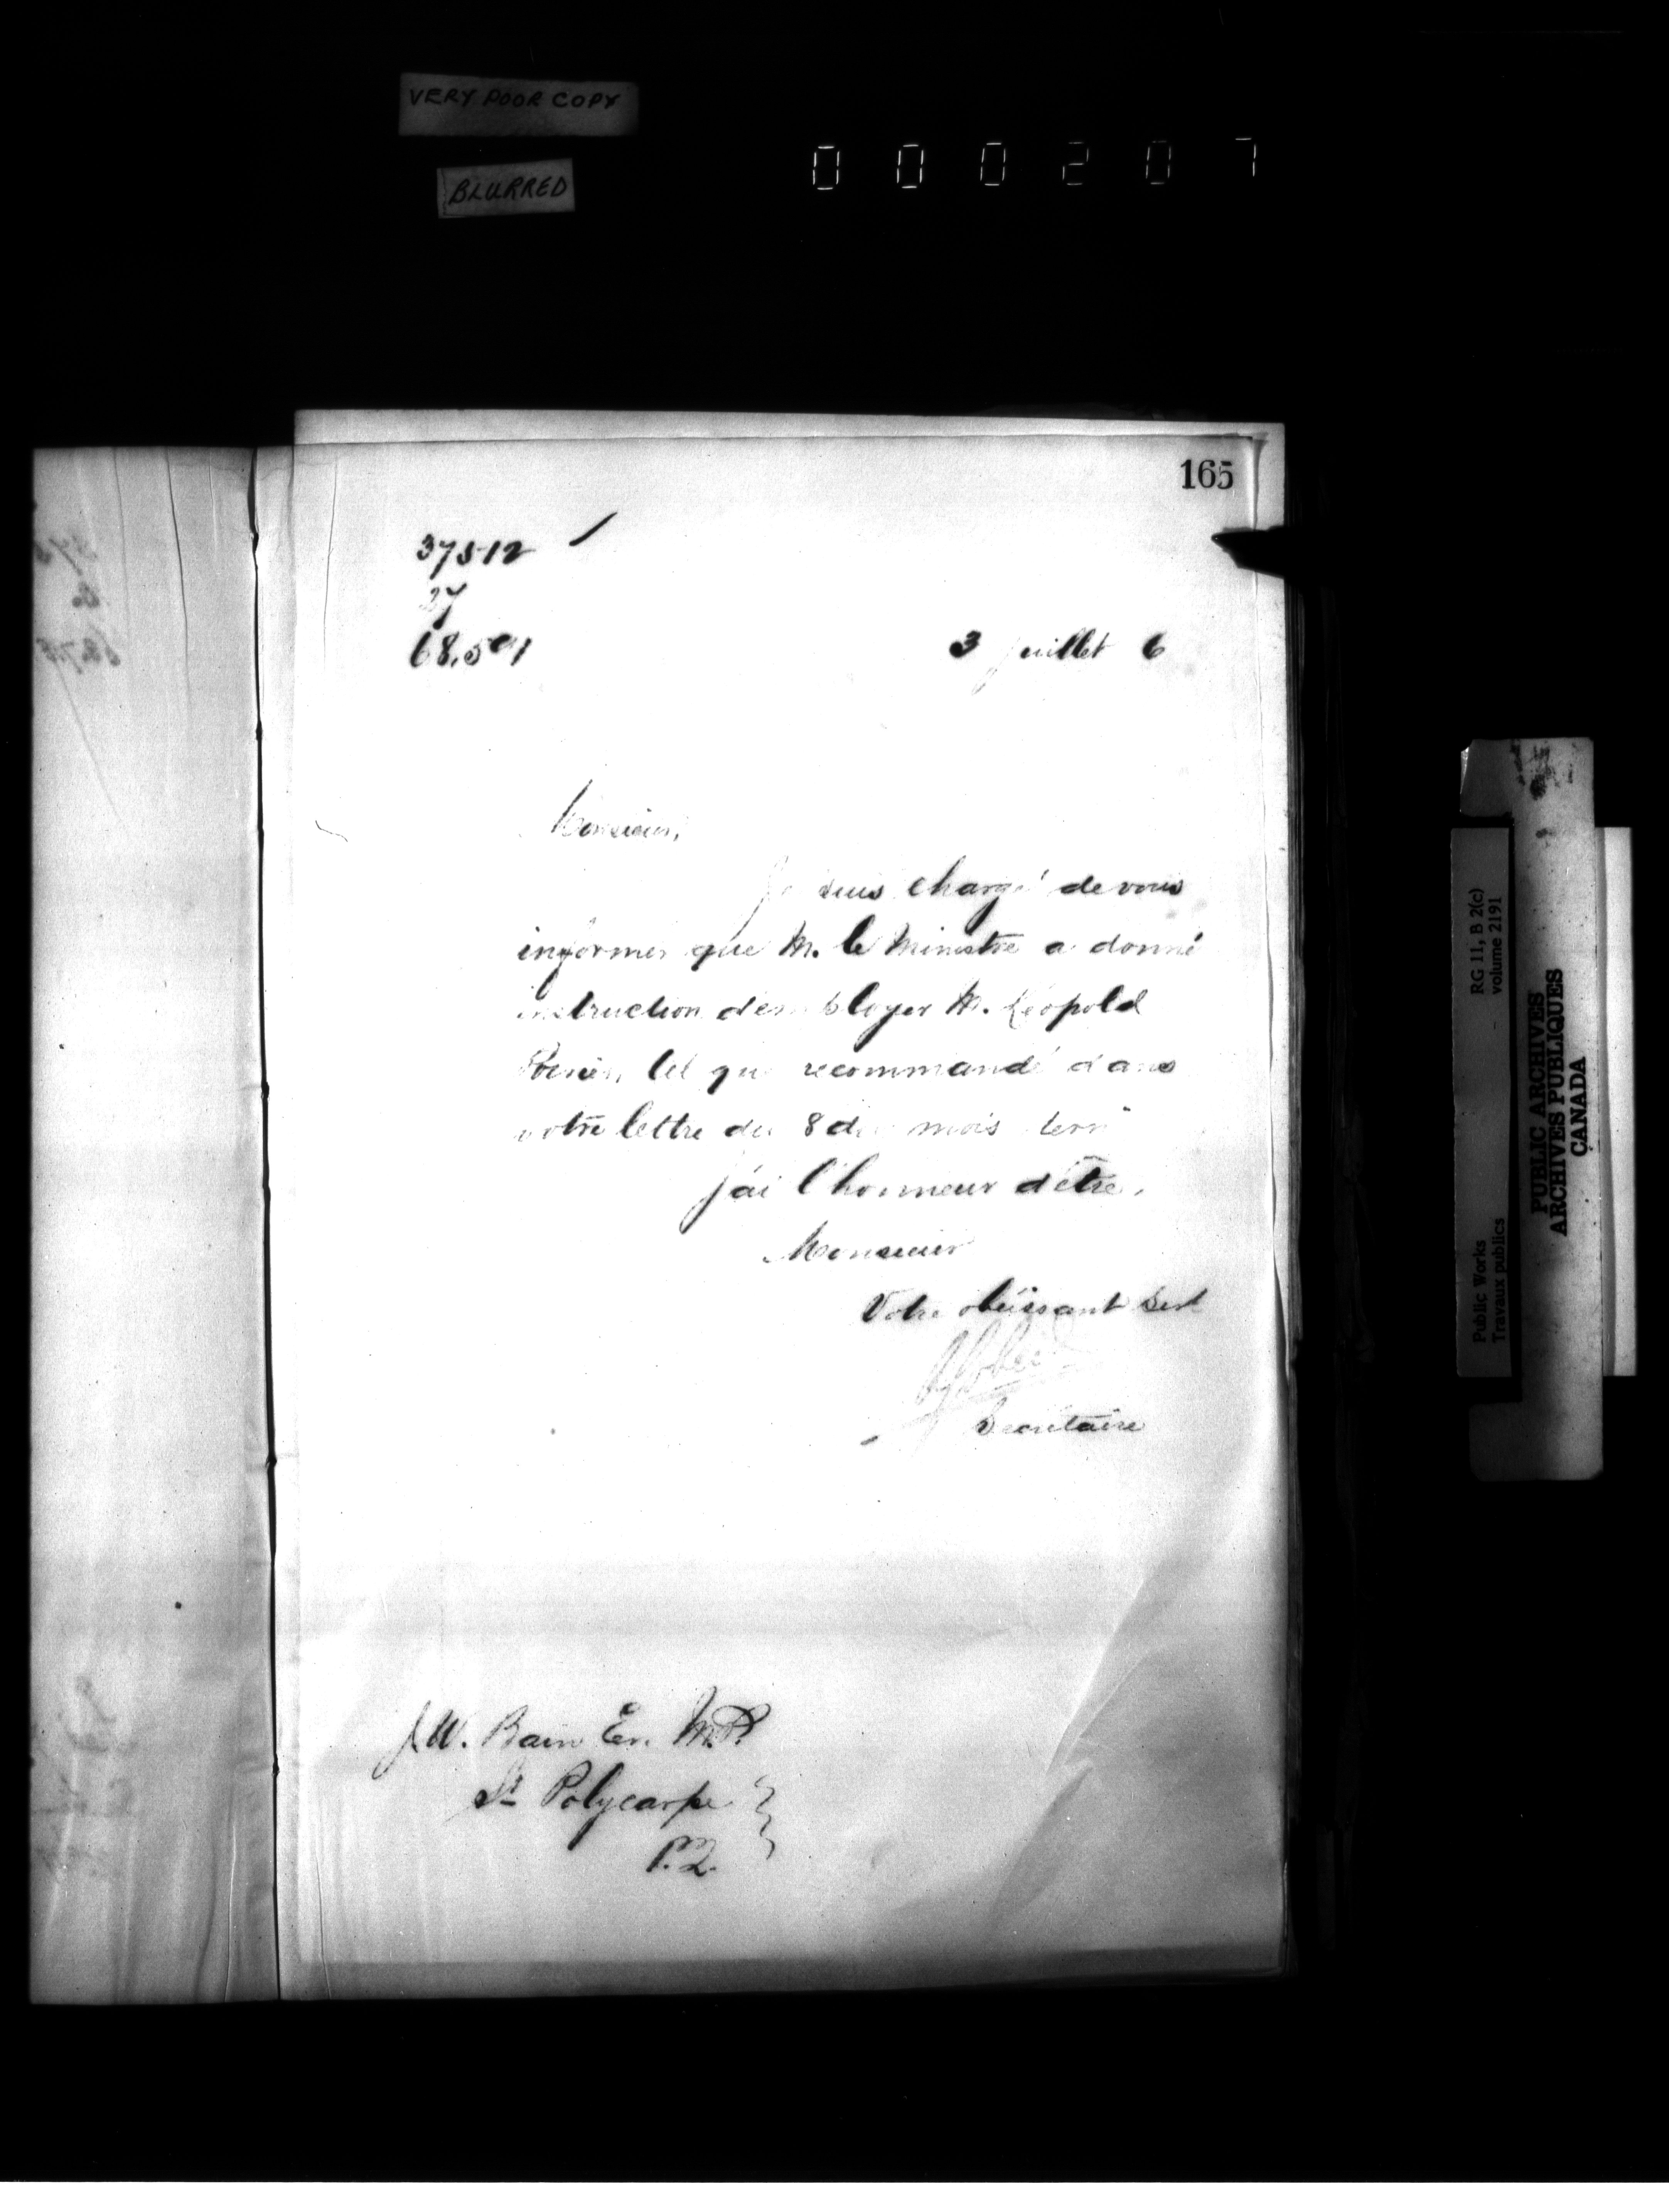 VERY POOR COPY
BLURRED
000207
165
37512
27
68.591
3 juillet 6
Monsieur,
Je suis chargé de vous
informer que M. le Ministre a donné
instruction d'employer M. Léopold
Poirier, tel que recommandé dans
votre lettre du 8 du mois dern
J'ai l'honneur d'être,
Monsieur
Votre obéissant Sert
Secrétaire
J.W. Bain Er. M.P.
St Polycarpe
P.Q.
Public Works
Travaux publics
RG 11, B 2(c)
volume 2191
PUBLIC ARCHIVES
ARCHIVES PUBLIQUES
CANADA